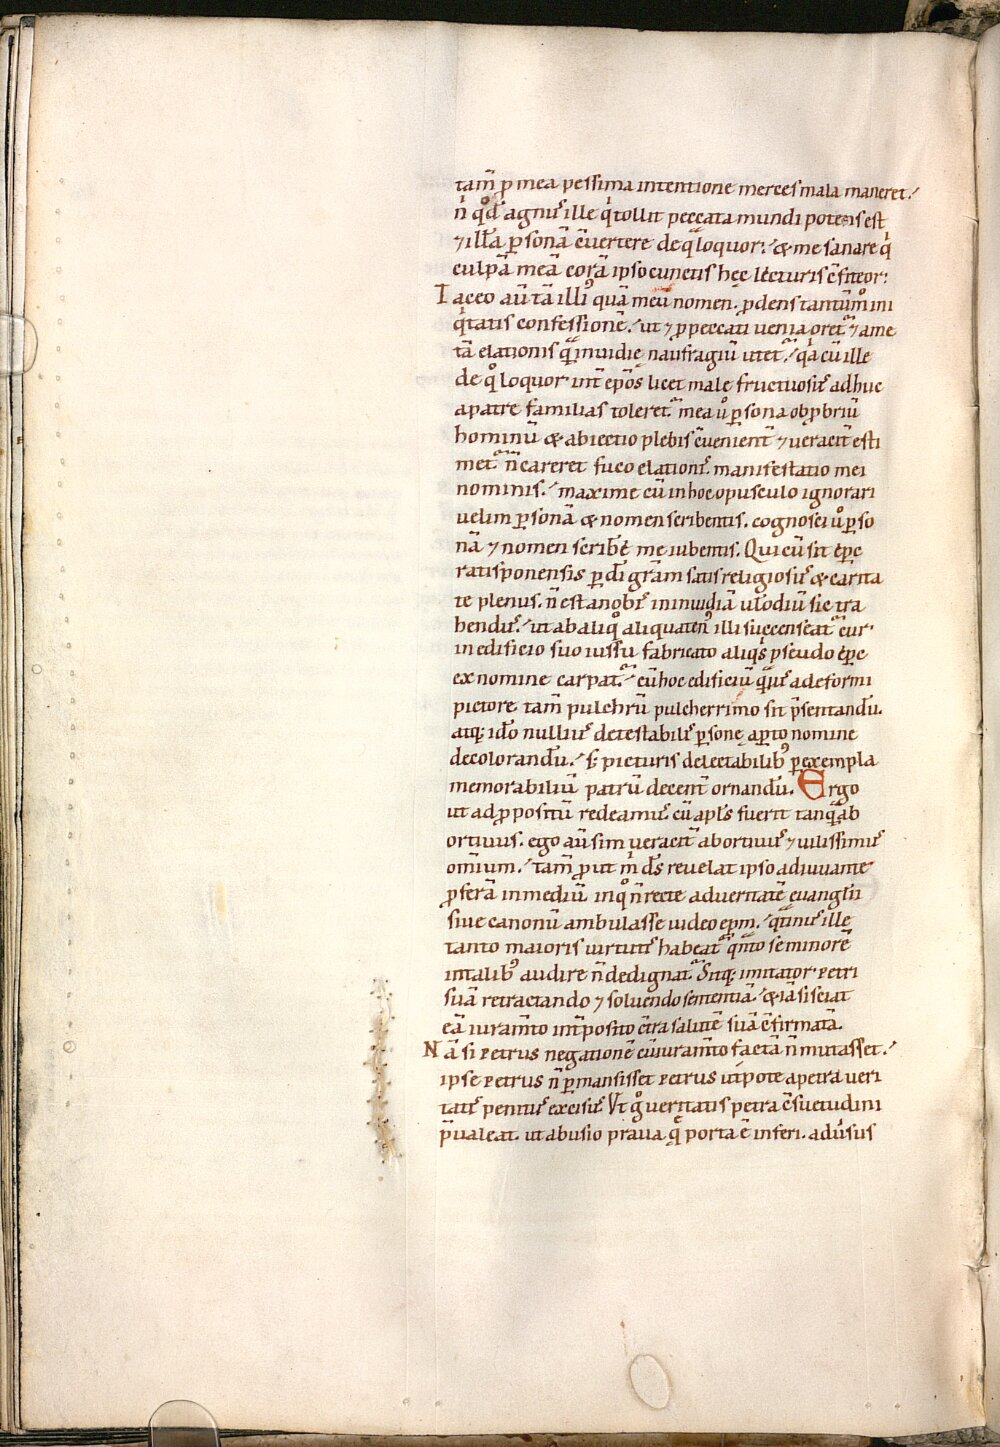 tam̄ ꝓ mea pessima intentione merces mala maneret.
n̄ qd̊ agnus ille qͥ tollit peccata mundi potens est
⁊ illā ꝑsonā ēuertere de q̄ loquor. & me sanare qͥ
culpā meā corā ipso cunctis hęc lecturis c̄fiteor.
Taceo aū tā illiꝰ quā meū nomen. ꝓdens tantūm̊ ini
qͥtatis confessionē. ut ⁊ ꝓ peccati uenia oret᷑ ⁊ a me
tā elationis q̄ inuidię naufragiū uitet᷑. qͥa cū ille
de qͦ loquor int̄ ep̄os licet male fructuosus adhuc
a patre familias toleret᷑ mea ů ꝑsona obꝓbriū
hominū & abiectio plebis c̄uenient̄ ⁊ ueracit̄ esti
met᷑. n̄ careret fuco elationis manifestatio mei
nominis. maxime cū in hoc opusculo ignorari
uelim ꝑsonā & nomen scribentis. cognosci ů ꝑso
nā ⁊ nomen scribe᷑ me iubentis. Qui cū sit ep̄c
ratisponensis ꝑ dī grām satis religiosus & carita
te plenus. n̄ est a nobis in inuidiā ut̄ odiū sic tra
hendus. ut ab aliqͦ aliquaten̄ illi succenseat᷑ cur
in edificio suo iussu fabricato aliqͥs pseudo ep̄c
ex nomine carpat᷑. cū hoc edificiū q̄uis a deformi
pictore tam̄ pulchrū pulcherrimo sit p̄sentandū.
atq; ido nullius detestabilis ꝑsonę aꝑto nomine
decolorandū. s; picturis delectabilibꝰ ꝑ exempla
memorabiliū patrū decent̄ ornandū. Ergo
ut ad ꝓpositū redeamus. cū apl̄s fuerit tanq̄ ab
ortiuus. ego aū sim ueracit̄ abortiuus ⁊ uilissimus
omium. tam̄ ꝓut m̄ ds̄ reuelat ipso adiuuante
ꝓferā in mediū in qͦ n̄ recte ad ueritatē euangl̄ii
siue canonū ambulasse uideo epm̄. q̄tinus ille
tanto maioris uirtutis habeat᷑ qn̄to se minorē
in talibꝰ audire n̄ dedignat᷑. Sitq; imitator petri
suā retractando ⁊ soluendo sententiā. & iā si sciat
eā iuram̄to int̄posito c̄tra salutē suā c̄firmatā.
Nā si petrus negationē cū iuram̄to factā n̄ mutasset.
ipse petrus n̄ ꝑmansisset petrus utpote a petra ueri
tatis penitus excisus. Vt g̊ ueritatis petra c̄suetudini
p̄ualeat. ut abusio praua. q̄ porta ē inferi. adūsus